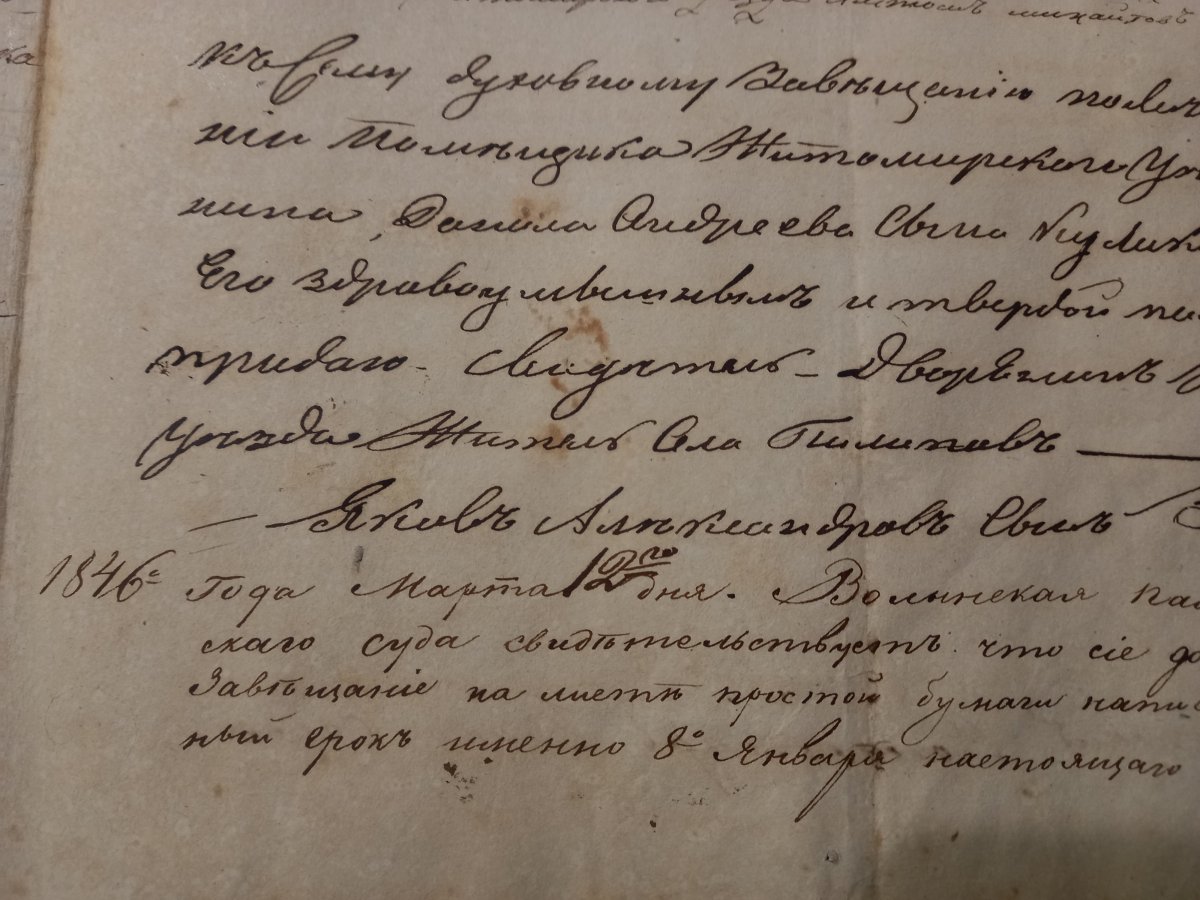 михайловъ
къ Сему духовному Завѣщанію
ніи Помѣщика Житомирского
нина, Данила Андреева Сына Кулик
Его здравоумышленнымъ и твердой
придаю – Свидѣтель – Дворянинъ
уѣзда Житель Села Пилиповъ
Яковъ Алѣксандровъ Сынъ
1846го Года Марта 12го дня. Волынская
скаго суда свидѣтельствуетъ что сіе
Завѣщаніе на листѣ простой бумаги напис
ный срокъ именно 8о Января настоящаго